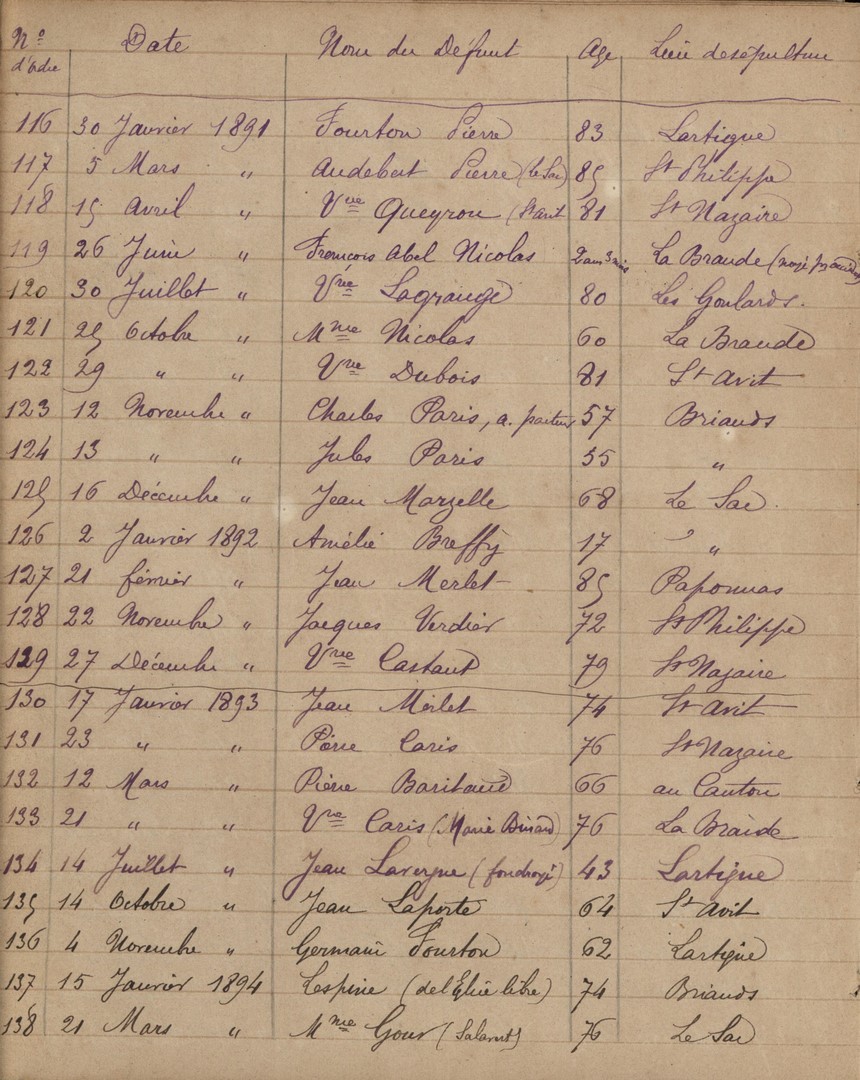 N° Date Nom du Défunt Age Lieu de sépulture
d'ordre
116 30 Janvier 1891 Fourton Pierre 83 Lartigue
117 5 Mars " Audebert Pierre (le Sac) 85 St Philippe
118 15 Avril " Vve Queyrou (St avit 81 St Nazaire
119 26 Juin " François Abel Nicolas 2 ans 3 mois La Braude (noyé
120 30 Juillet " Vve Lagrange 80 Les Goulards.
121 25 Octobre " Mme Nicolas 60 La Braude
122 29 " " Vve Dubois 81 St Avit
123 12 Novembre " Charles Paris, a. pasteur 57 Briands
124 13 " " Jules Paris 55 "
125 16 Décembre " Jean Marzelle 68 Le Sac.
126 2 Janvier 1892 Amélie Breffy 17 "
127 21 février " Jean Merlet 85 Paponnas
128 22 Novembre " Jacques Verdier 72 St Philippe
129 27 Décembre " Vve Castaut 79 St Nazaire
130 17 Janvier 1893 Jean Mérlet 74 St Avit
131 23 " " Pierre Caris 76 St Nazaire
132 12 Mars " Pierre Baritaud 66 au Canton
133 21 " " Vve Caris (Marie Binaud) 76 La Braude
134 14 Juillet " Jean Lavergne (foudroyé) 43 Lartigue
135 14 Octobre " Jean Laporte 64 St Avit
136 4 Novembre " Germain Fourton 62 Lartigue
137 15 Janvier 1894 Lespine (de l'Eglise libre) 74 Briands
138 21 Mars " Mme Gour 76 Le Sac